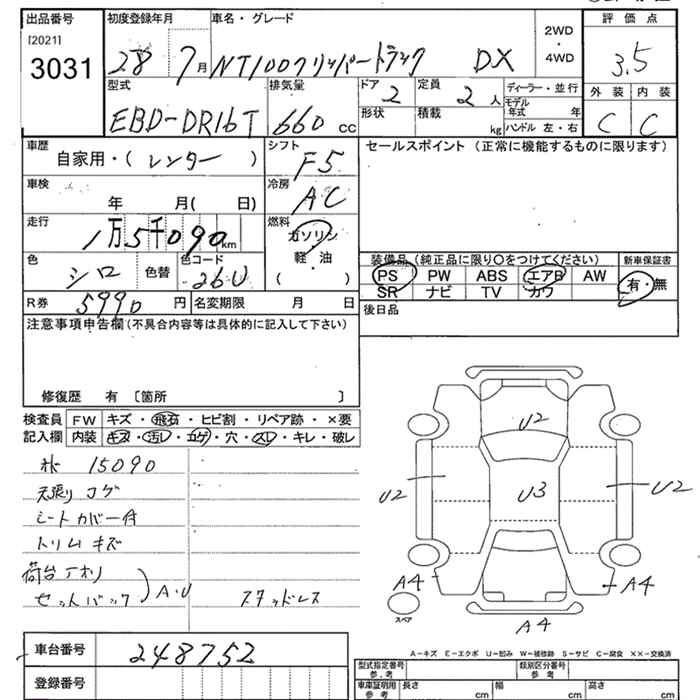 出品番号 初度登録年月 車名・グレード 2WD ・ 4WD 評価点
[2021]
3031 28 7月 NT100クリッパートラック DX 3.5
型式 排気量 ドア 定員 ディーラー・並行 外装 内装
EBD-DR16T 660 cc 2 2人 モデル年式 年
形状 積載 kg ハンドル 左・右 C C
車歴 シフト セールスポイント (正常に機能するものに限ります)
自家用・(レンター) F5
車検 冷房
年 月( 日) AC
走行 燃料
1万5千090km ガソリン
色 色替 色コード 軽・油
シロ 26U ( )
装備品(純正品に限り○をつけてください) 新車保証書
PS PW ABS エアB AW 有・無
SR ナビ TV カワ
R券 5990円 名変期限 月 日 後日品
注意事項申告欄(不具合内容等は具体的に記入して下さい)
修復歴 有 〔箇所 〕
検査員 FW キズ・飛石・ヒビ割・リペア跡・×要
記入欄 内装 キズ・汚レ・コゲ・穴・スレ・キレ・破レ
15090
天張りコゲ
シートカバー付
トリムキズ
荷台アオリ
セットバック A・U スタッドレス
U2
U2 U3 U2
A4 A4
スペア
A4
車台番号 248752
登録番号
A-キズ E-エクボ U-凹み W-補修跡 S-サビ C-腐食 XX-交換済
型式指定番号 参考 類別区分番号 参考
車庫証明用 参考 長さ cm 幅 cm 高さ cm